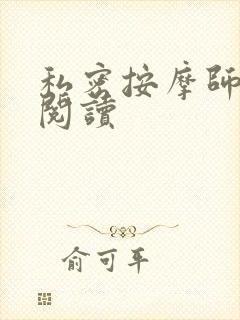 私密按摩師
閱讀
俞可平